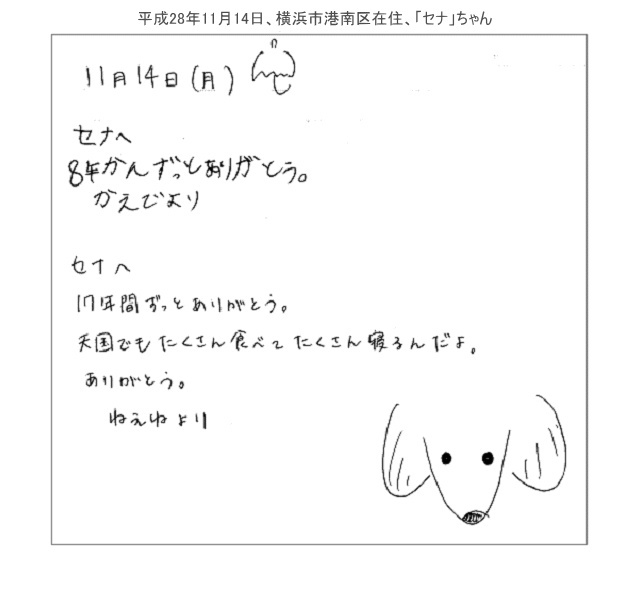 平成28年11月14日、横浜市港南区在住、「セナ」ちゃん
11月14日(月)
セナへ
8年かんずっとありがとう。
かえでより
セナへ
17年間ずっとありがとう。
天国でもたくさん食べてたくさん寝るんだよ。
ありがとう。
ねえねより